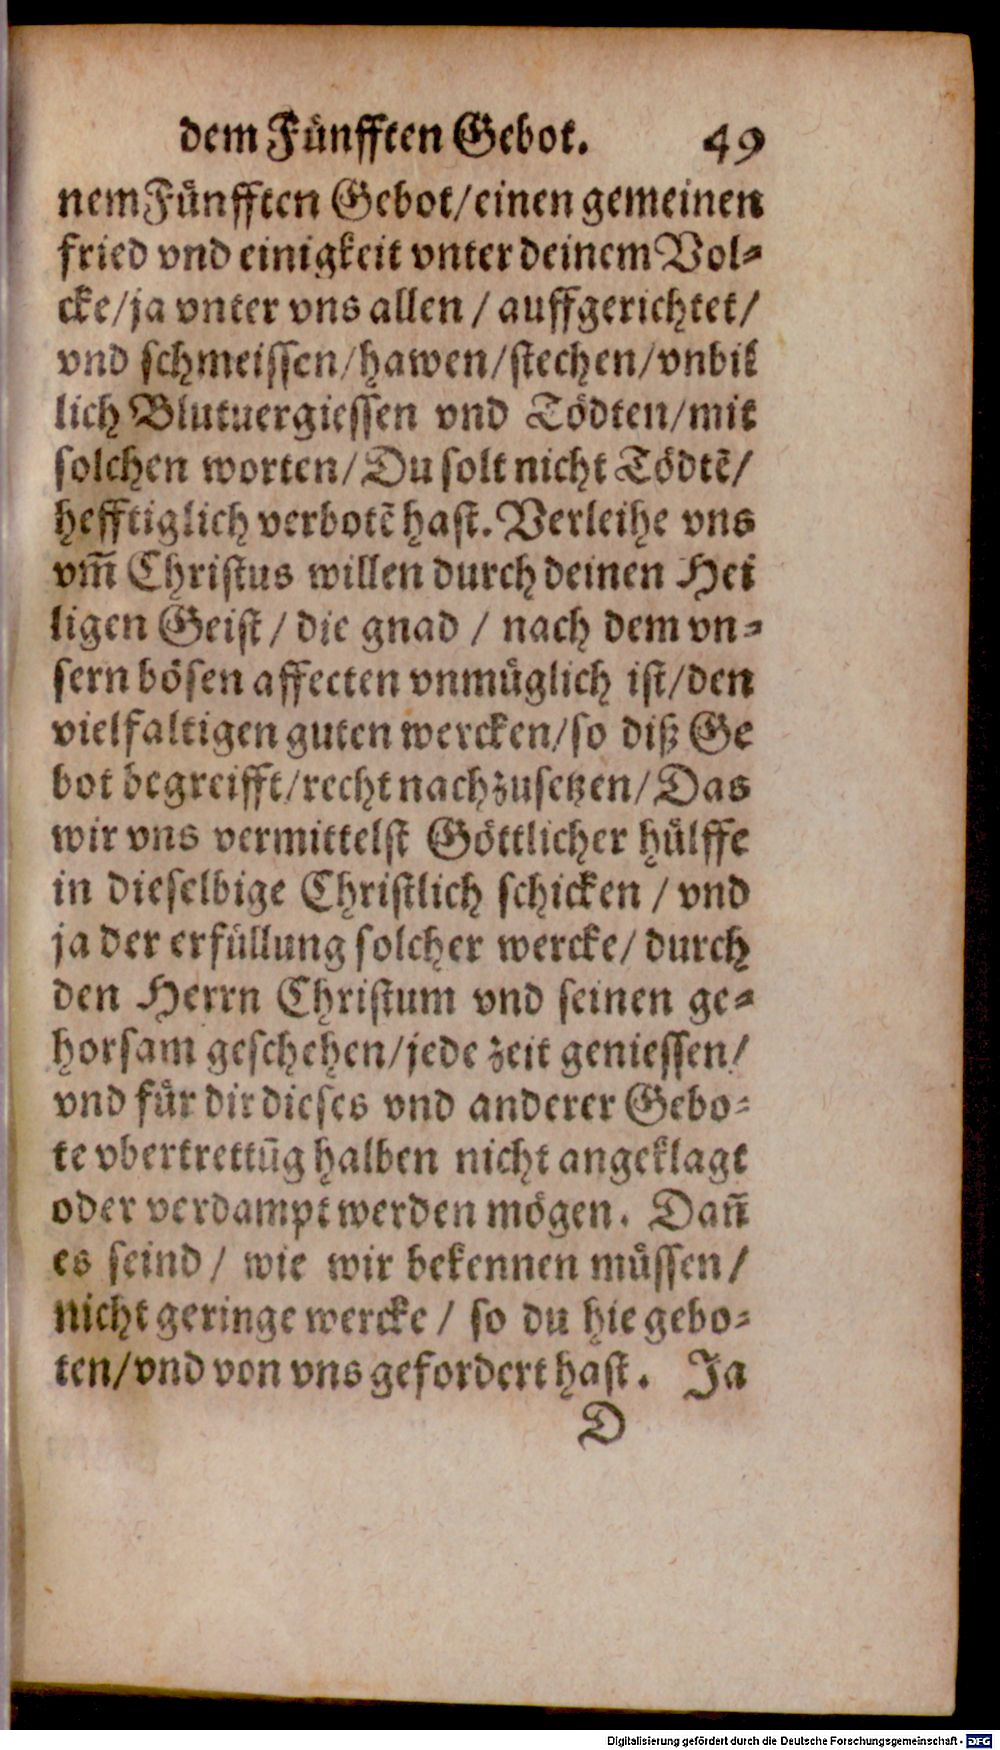 dem Fünfften Gebot. 49
nem Fünfften Gebot/einen gemeinen
fried vnd einigkeit vnter deinem Vol-
cke/ja vnter vns allen / auffgerichtet/
vnd schmeissen/hawen/stechen/vnbil
lich Blutuergiessen vnd Tödten/mit
solchen worten/Du solt nicht Tödtẽ/
hefftiglich verbotẽ hast. Verleihe vns
vm̃ Christus willen durch deinen Hei
ligen Geist / die gnad / nach dem vn-
sern bösen affecten vnmüglich ist/den
vielfaltigen guten wercken/so diß Ge
bot begreifft/recht nachzusetzen/Das
wir vns vermittelst Göttlicher hülffe
in dieselbige Christlich schicken / vnd
ja der erfüllung solcher wercke/ durch
den Herrn Christum vnd seinen ge-
horsam geschehen/jede zeit geniessen/
vnd für dir dieses vnd anderer Gebo-
te vbertrettũg halben nicht angeklagt
oder verdampt werden mögen. Dañ
es seind / wie wir bekennen müssen/
nicht geringe wercke / so du hie gebo-
ten/vnd von vns gefordert hast. Ja
D
Digitalisierung gefördert durch die Deutsche Forschungsgemeinschaft - DFG